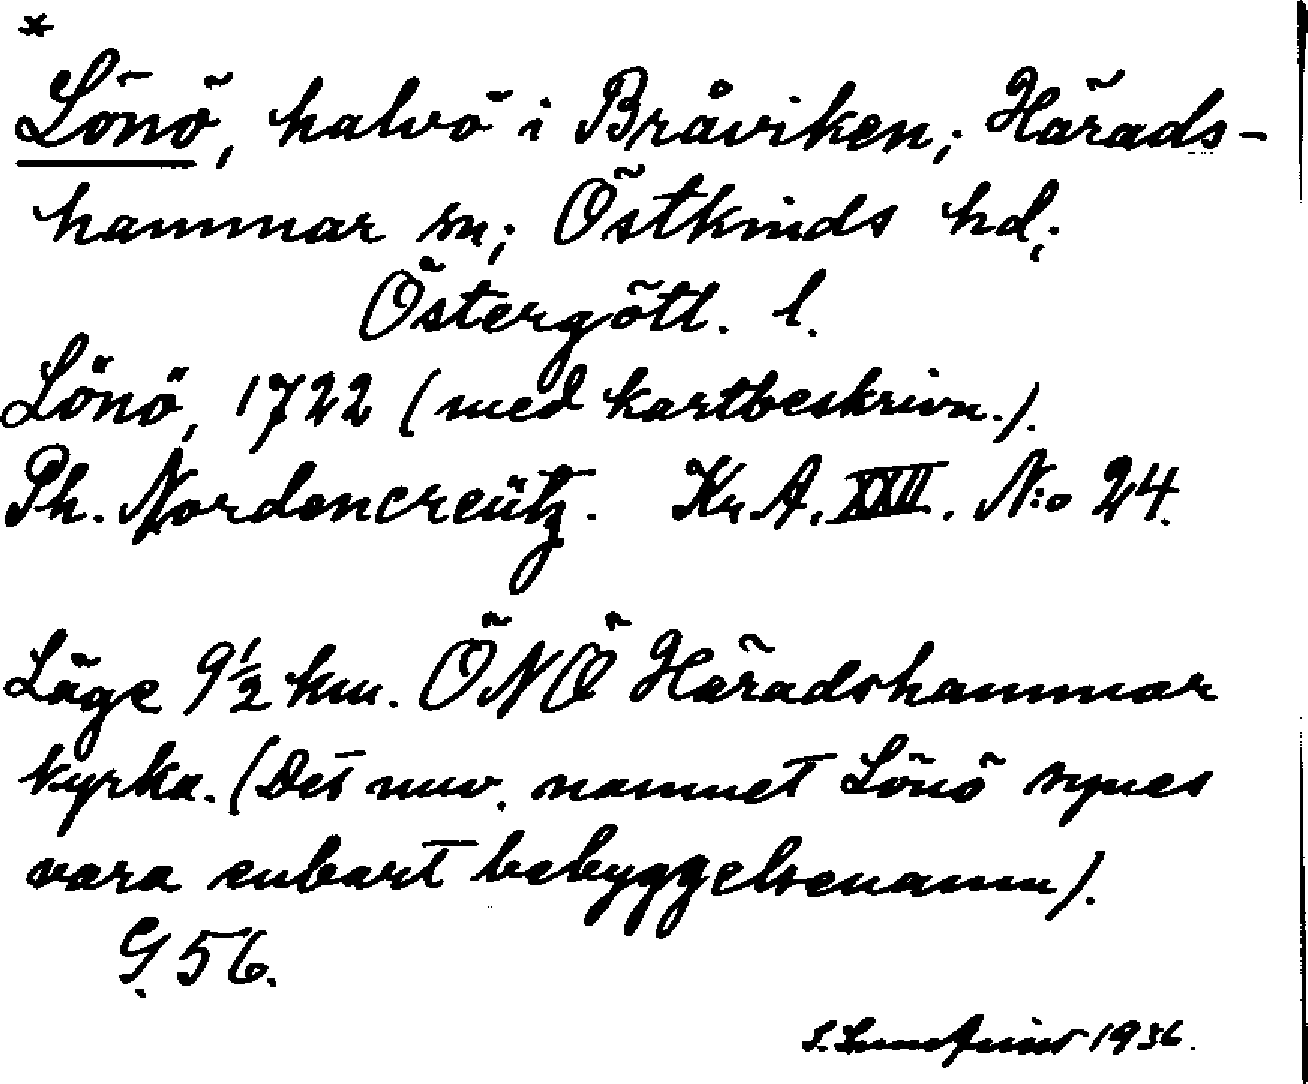 *
Lönö, halvö i Bråviken; Härads-
hammar sn; Östkinds hd;
Östergötl. l.
Lönö, 1722 (med kartbeskrivn.).
Ph. Nordencreütz. Kr. A. XXII. N:o 24.
Läge 9½ km. ÖNÖ Häradshammar
kyrka. (Det nuv. namnet Lönö synes
vara enbart bebyggelsenamn).
G. 56.
1936.